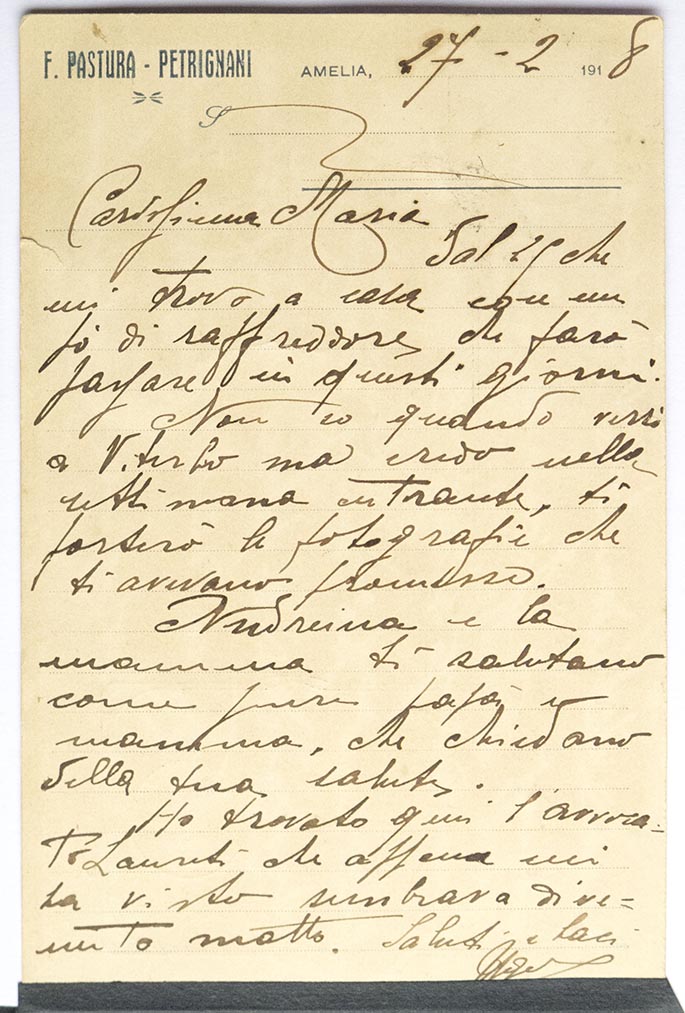 F. PASTURA - PETRIGNANI
AMELIA, 27 - 2 1918
S
Carissima Maria
Dal 25 che
mi trovo a casa con un
pò di raffreddore, che farò
passare in questi giorni.
Non so quando verrò
a Viterbo ma credo nella
settimana entrante, ti
porterò le fotografie che
ti avevano promesse.
Andreina e la
mamma ti salutano
come pure papà e
mamma, che chiedano
della tua salute.
Ho trovato qui l'avvoca-
to Laureti che appena mi
ha visto sembrava dive-
nuto matto. Saluti e baci